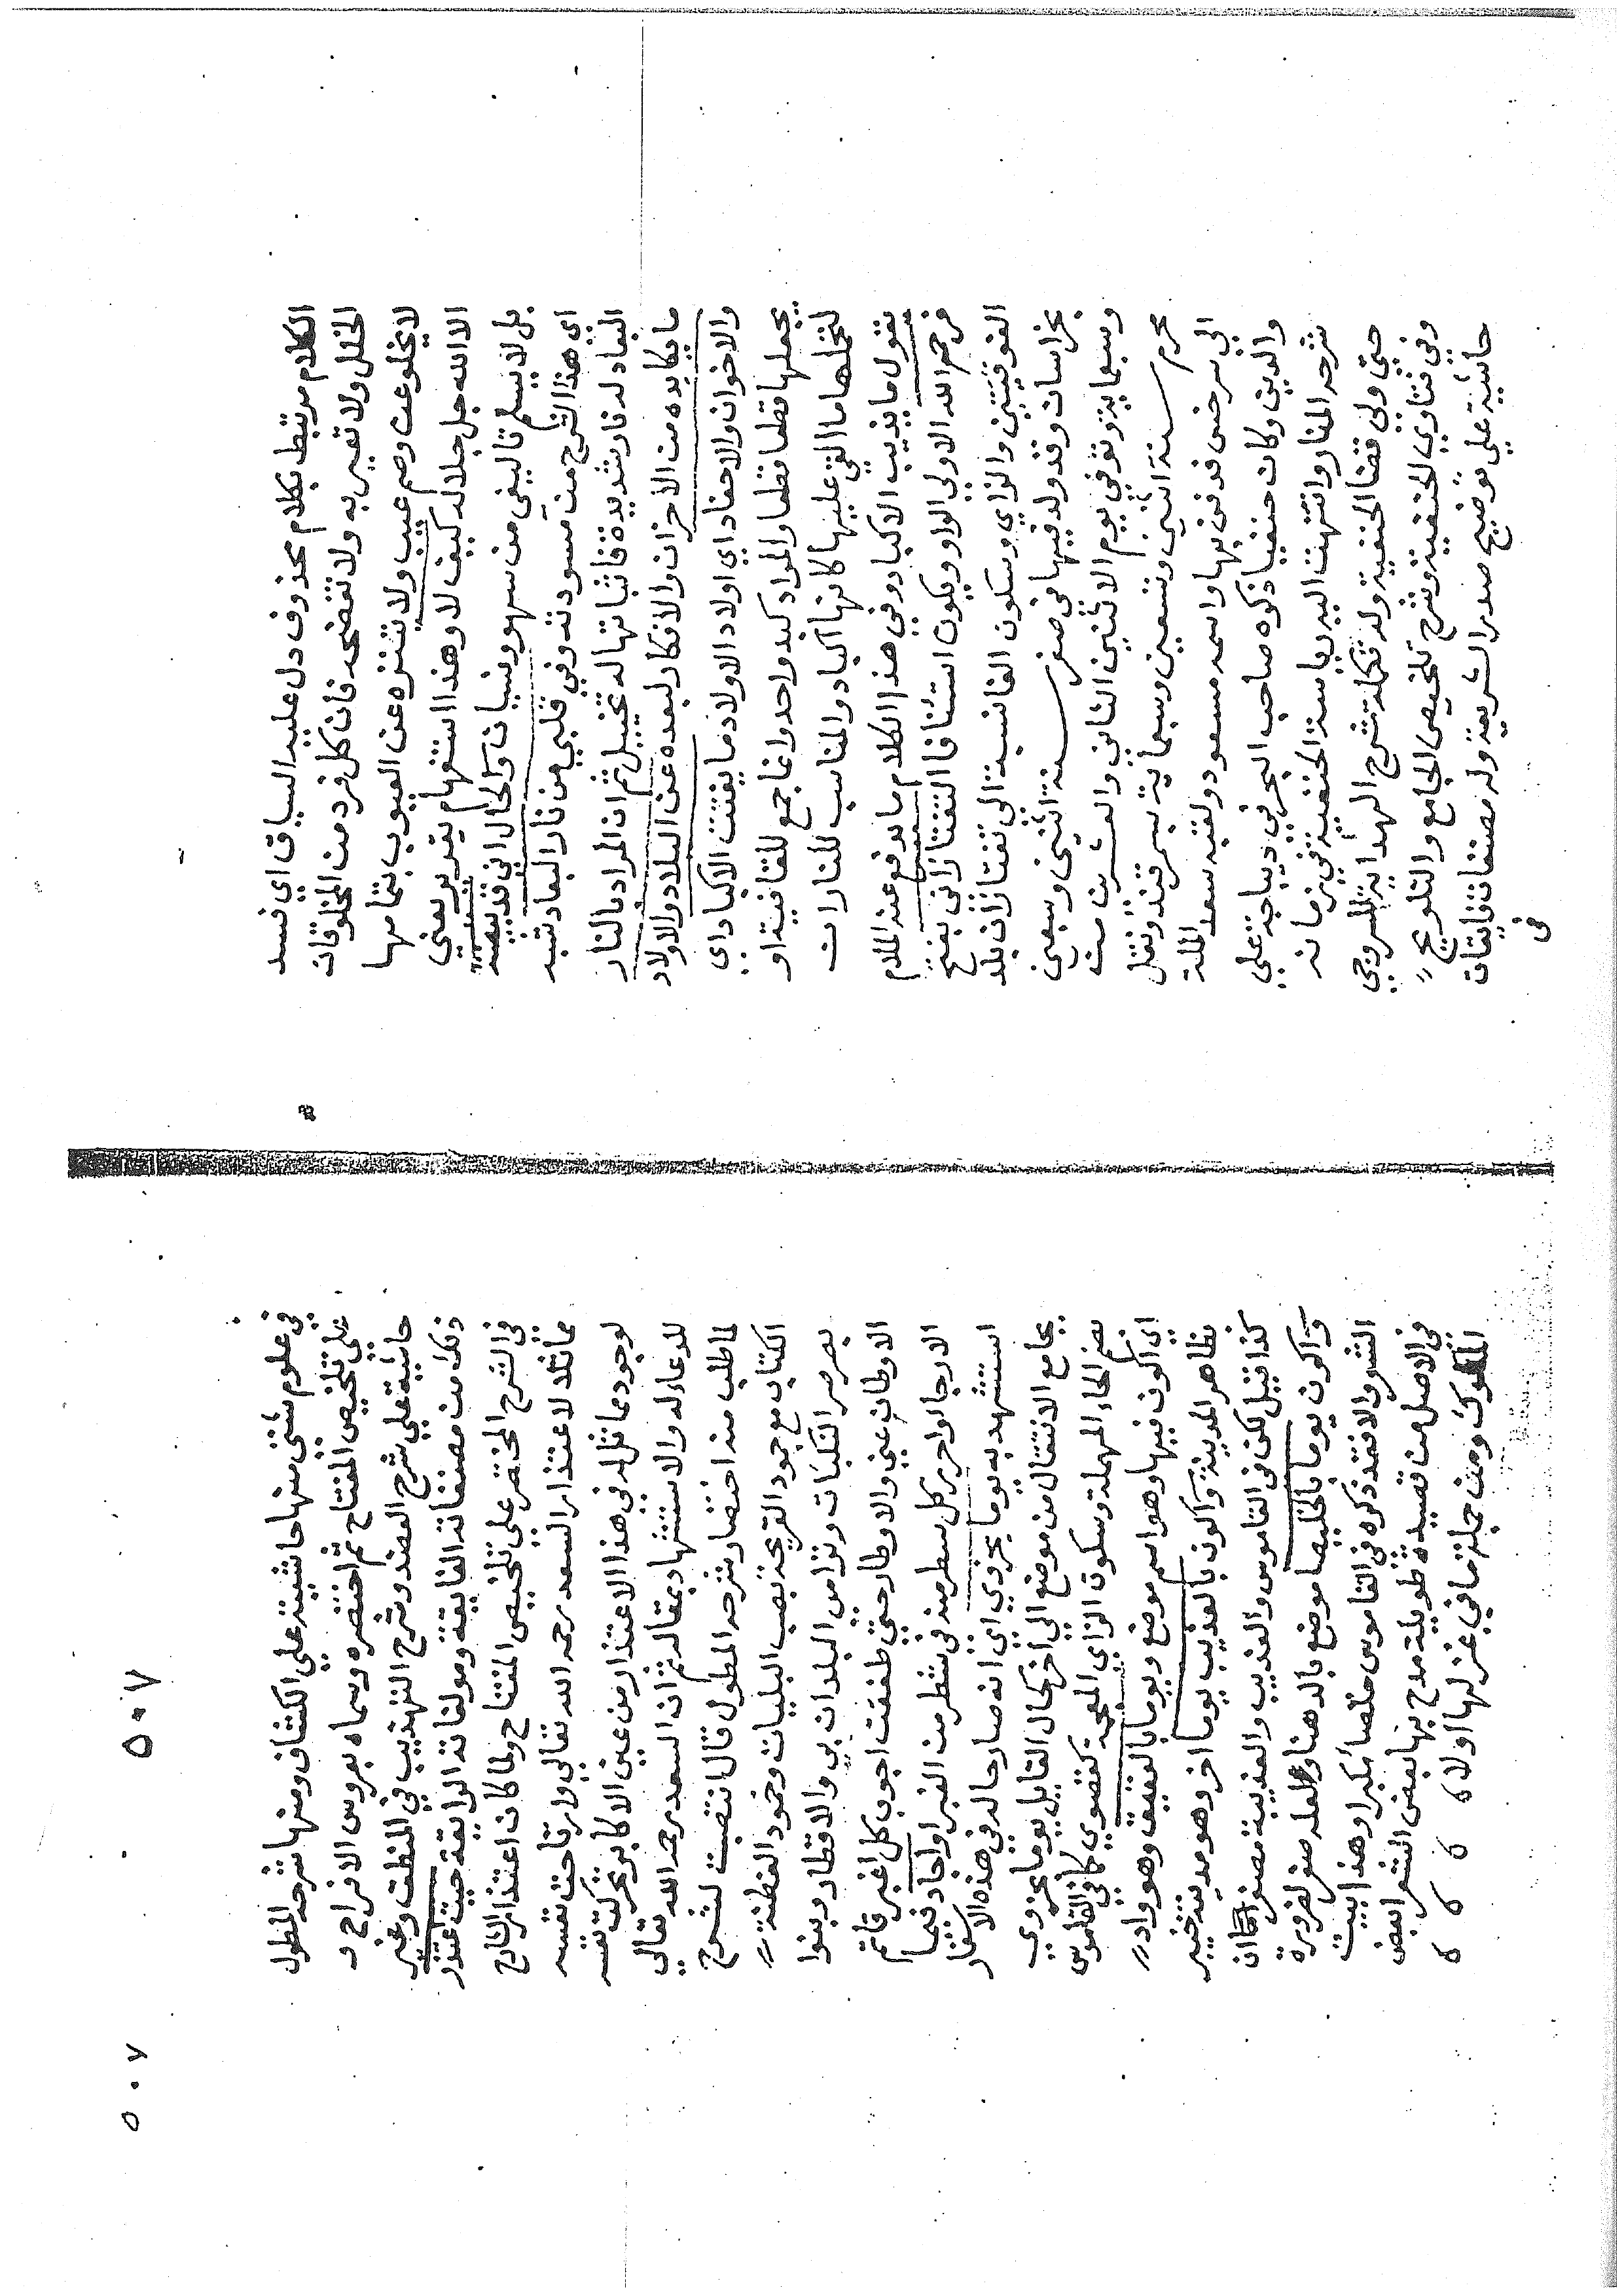 الكلام مرتبط بكلام محذوف دل عليه السياق اي فسد
الخلل ولا تعيير به ولا تفضحه فان كل فرد من المخلوقات
لا يخلو عن وصم عيب ولا يتنزه عن العيوب بتمامها
الا الله جل جلاله كيف لا وهذا استفهام تقديره يعني
بل لا يسلم تاليفي من سهو ونسيان والحال اني قد
اي هذا الشرح من مسودته وفي قلبي من نار البعاد شبه
البعاد له نار شديدة فاثباتها له تخييل ثم ان المراد بالنار
ما يكابده من الاحزان والافكار لبعده عن البلاد والاولاد
والاخوان والاحفاد اي اولاد الاولاد ما يفتت الاكباد اي
يجعلها قطعا قطعا والمراد كبد واحد وانما جمع للقافية او
لتخيلها ما القي عليها كانها اكباد والمناسب للنار ان
يقول ما يذيب الاكباد وفي هذا الكلام ما يدفع عنه الملام
فرحم الله الاولي الواو ويكون استئنافا التفتازاني بفتح
الفوقيتين والزاي وسكون الفا نسبة الي تفتازان بلد
بخراسان وقد ولد فيها في صفر سنة اثني وسبعين
وسبعماية وتوفي يوم الاثنين الثاني والعشرين من
محرم سنة اثني وتسعين وسبعماية بسمرقند ونقل
الي سرخس فدفن بها واسمه مسعود ولقبه سعد الملة
والدين وكان حنفيا ذكره صاحب البحر في ديباجة علي
شرحه المنار وانتهت اليه رياسة الحنفية في زمانه
حتي ولي قضا الحنفية وله تكملة شرح الهداية للسروجي
وفي فتاوي الحنفية وشرح تلخيص الجامع والتلويح
حاشية علي توضيح صدر الشريعة وله مصنفات فايقات
في
٥٠٧
في علوم شتي منها حاشية علي الكشاف ومنها شرحه المطول
علي تلخيص المفتاح ثم اختصره وسماه بعروس الافراح و
حاشية علي شرح العضد وشرح التهذيب في المنطق وغير
ذلك من مصنفاته الفايقة ومولفاته الرايقة حيث اعتذر
في الشرح المختصر علي تلخيص المفتاح ولما كان اعتذار الشارح
مماثلا لاعتذار السعد رحمه الله تعالي وارتاحت نفسه
لوجود مماثل له في هذا الاعتذار من عين الاكابر تحركت نفسه
للدعاء له والاستشهاد بمقاله ثم ان السعد رحمه الله تعالي
لما طلب منه اختصار شرحه المطول قال انتصبت لشرح
الكتاب مع جمود القريحة بصب البليات وخمود الفطنة
بصرصر النكبات وترامي البلدان بي والاقطار ونبوا
الاوطان عني والاوطار حتي طفقت اجوب كل اغبر قاتم
الارجا واحرر كل سطر منه في شطر من الغبرا واجاد فيما
استشهد به يوما بحزوي اي انه صار حاله في هذه الاسفار
بجامع الانتقال من موضع الي اخر كحال القايل يوما بحزوي
بضم الحاء المهملة وسكون الزاي المعجمة كقصوي كما في القاموس
اي اكون فيها وهو اسم موضع ويوما بالعقيق وهو واد
بظاهر المدينة واكون بالعذيب يوما اخر وهو مدينة خيبر
كذا قيل لكن في القاموس والعذيب والعذيبة مصغران
واكون يوما بالخليصا موضع بالدهنا ولعله صغر لضرورة
الشعر والا فقد ذكره في القاموس خلصا مكبرا وهذا بيت
في الاصل من قصيدة طويلة مدح بها بعض الشعرا بعض
الملوك ومن جملة ما في غزلها اولا ٥ ٥ ٥ ٥
٥٠٧